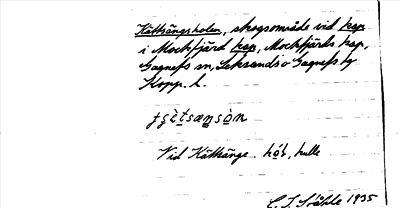 Kättängsholen, skogsområde vid kap.
i Mockfjärd kap, Mockfjärds kap,
Gagnefs sn, Leksands o Gagnefs tg
Kopp. l.
Vid Kättänge hol, kulle
C. I. Ståhle 1935